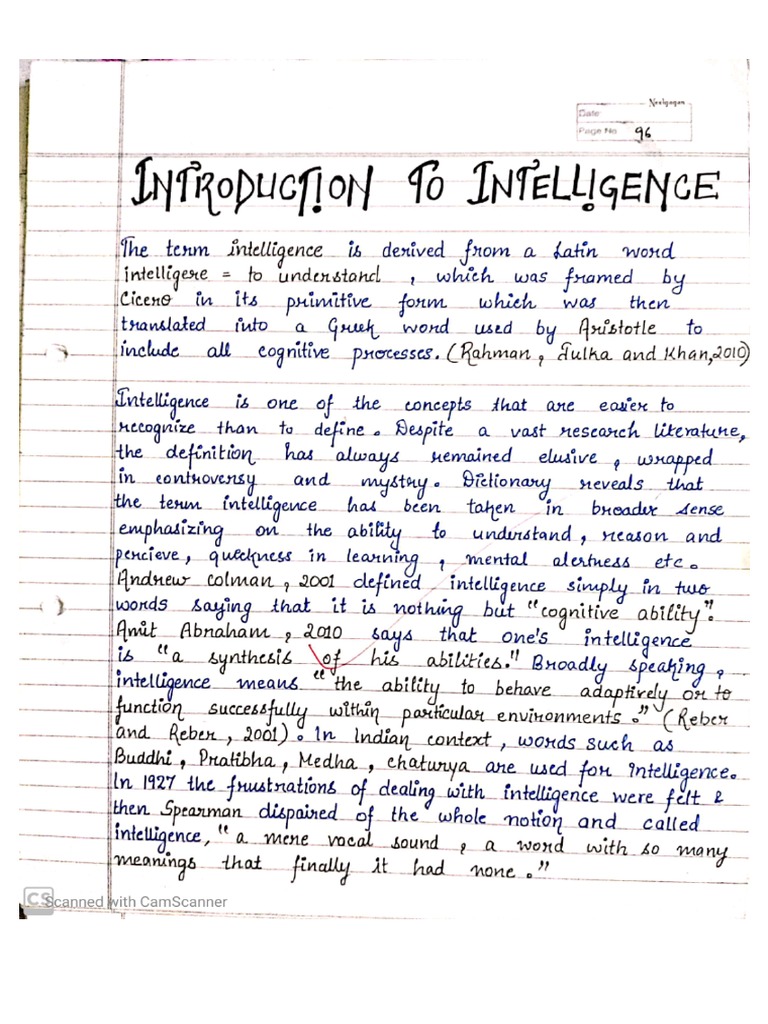 Neelgagan
Date
Page No 96
INTRODUCTION TO INTELLIGENCE
The term intelligence is derived from a Latin word
intelligere = to understand , which was framed by
Cicero in its primitive form which was then
translated into a Greek word used by Aristotle to
include all cognitive processes. (Rahman, Julka and Khan, 2010)
Intelligence is one of the concepts that are easier to
recognize than to define. Despite a vast research literature,
the definition has always remained elusive, wrapped
in controversy and mystry. Dictionary reveals that
the term intelligence has been taken in broader sense
emphasizing on the ability to understand, reason and
percieve, queckness in learning, mental alertness etc.
Andrew Colman, 2001 defined intelligence simply in two
words saying that it is nothing but "cognitive ability".
Amit Abraham, 2010 says that one's intelligence
is "a synthesis of his abilities." Broadly speaking,
intelligence means "the ability to behave adaptively or to
function successfully within particular environments." (Reber
and Reber, 2001). In Indian context, words such as
Buddhi, Pratibha, Medha, chaturya are used for intelligence.
In 1927 the frustrations of dealing with intelligence were felt &
then Spearman dispaired of the whole notion and called
intelligence, "a mere vocal sound, a word with so many
meanings that finally it had none."
CS Scanned with CamScanner